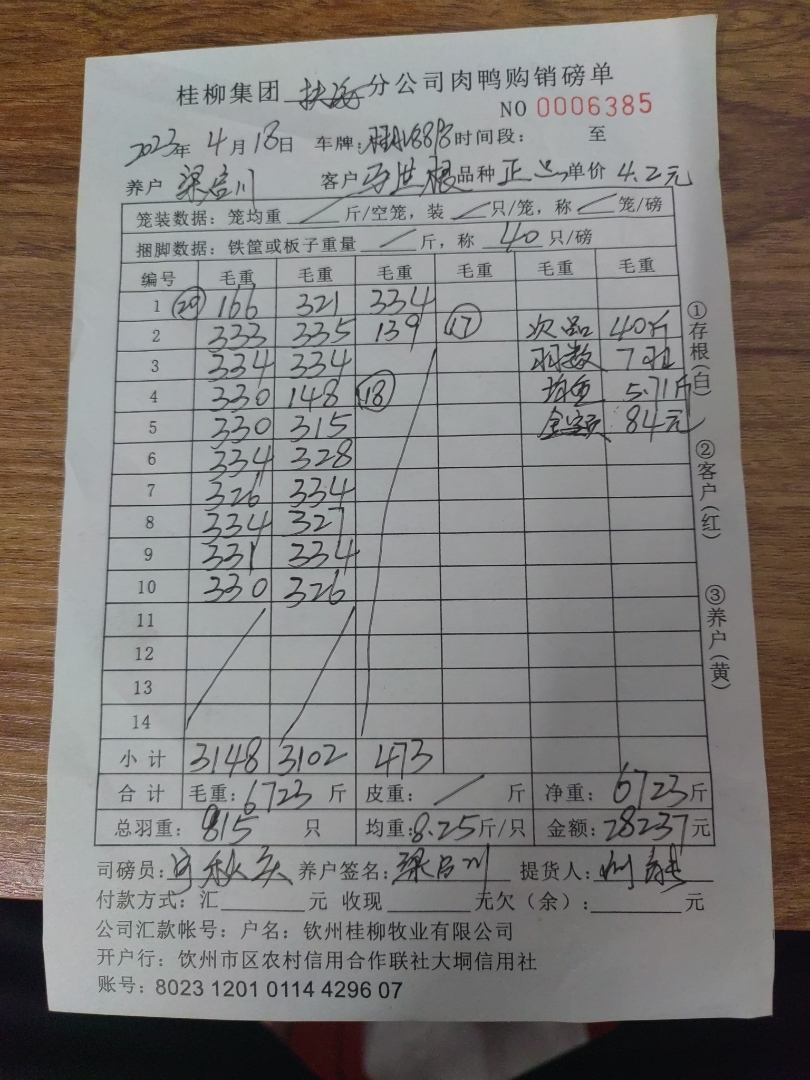 桂柳集团 扶海 分公司肉鸭购销磅单
NO 0006385
2023年 4月18日 车牌: 时间段: 至
养户 客户 品种 正品 单价 4.2元
笼装数据: 笼均重 / 斤/空笼, 装 / 只/笼, 称 / 笼/磅
捆脚数据: 铁筐或板子重量 / 斤, 称 40 只/磅
编号 毛重 毛重 毛重 毛重 毛重 毛重
1 ⑳ 166 321 334
2 333 335 139 ⑰ 次品 40斤
3 334 334 羽数 7羽
4 330 148 ⑱ 均重 5.71斤
5 330 315 金额 84元
6 334 328
7 326 334
8 334 327
9 331 334
10 330 326
11
12
13
14
小计 3148 3102 473
合计 毛重: 6723 斤 皮重: / 斤 净重: 6723 斤
总羽重: 815 只 均重: 8.25 斤/只 金额: 28237 元
司磅员: 养户签名: 提货人:
付款方式: 汇______元 收现______元欠(余):______元
公司汇款帐号: 户名: 钦州桂柳牧业有限公司
开户行: 饮州市区农村信用合作联社大垌信用社
账号: 8023 1201 0114 4296 07
①存根(白)
②客户(红)
③养户(黄)